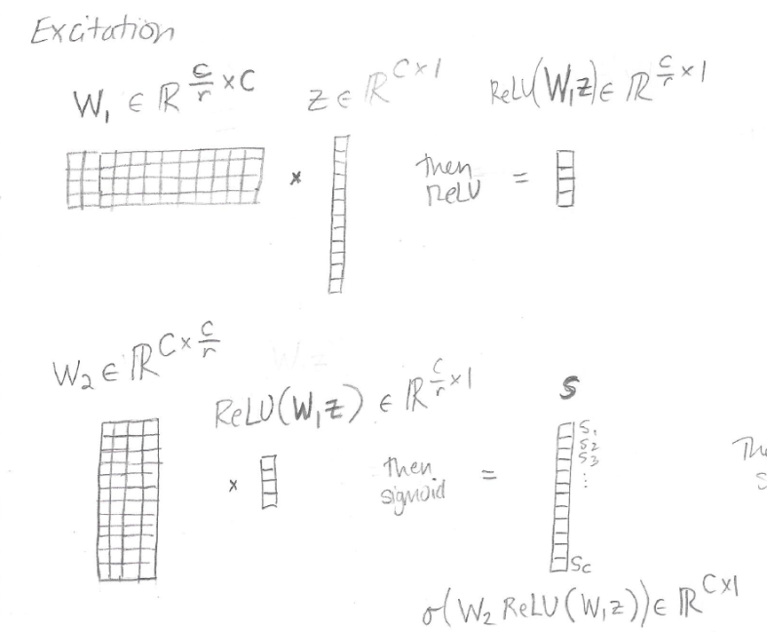 Excitation
W₁ ∈ ℝ^(C/r × C)
z ∈ ℝ^(C×1)
ReLU(W₁z) ∈ ℝ^(C/r × 1)
×
then
ReLU
=
W₂ ∈ ℝ^(C × C/r)
ReLU(W₁z) ∈ ℝ^(C/r × 1)
s
×
then
sigmoid
=
s₁
s₂
s₃
⋮
s_C
σ(W₂ ReLU(W₁z)) ∈ ℝ^(C×1)